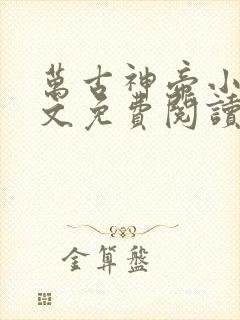 萬古神帝小
文免費閱讀
金算盤